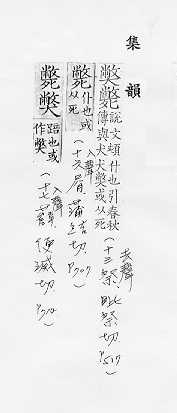 集韻
獘斃 說文頓仆也引春秋傳與犬犬獘或从死（十三祭，毗祭切，P517）去聲
斃 仆也或从死（十六屑，蒲結切，P707）入聲
斃獘 踣也或作獘（十七薛，便滅切，）入聲